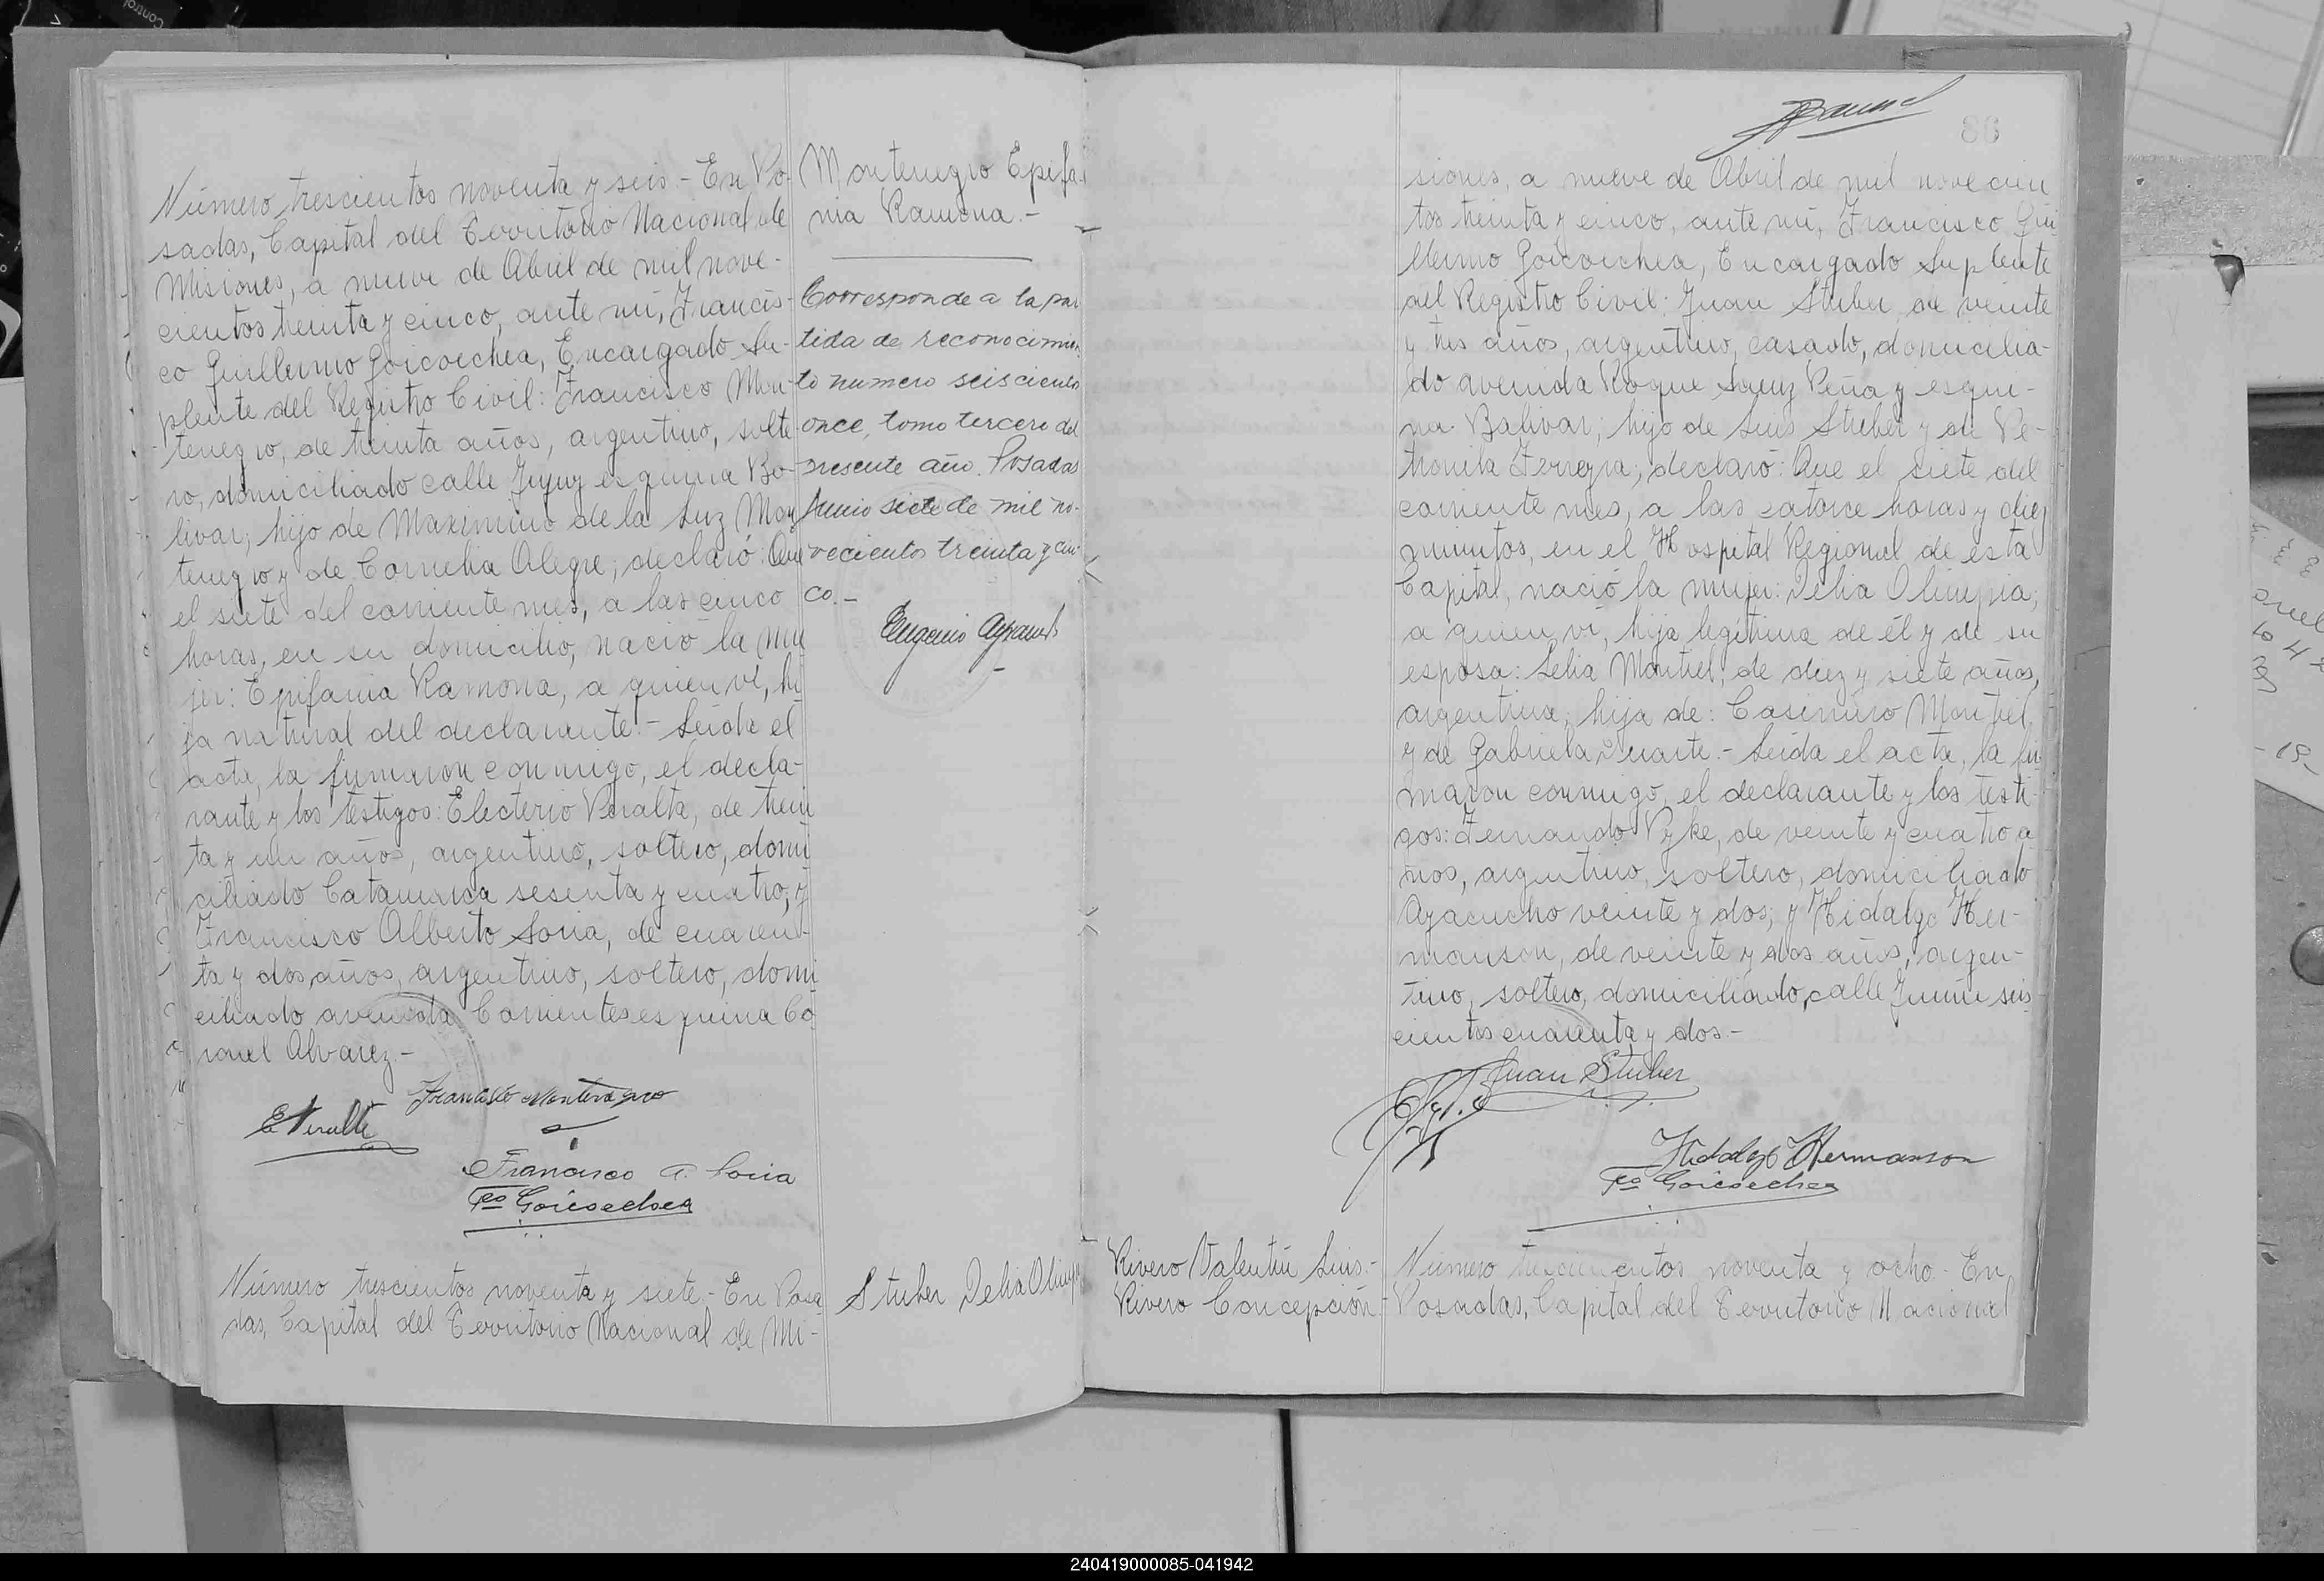 Número trescientos noventa y seis.- En Po-
sadas, Capital del Territorio Nacional de
Misiones, a nueve de Abril de mil nove-
cientos treinta y cinco, ante mí, Francis-
co Guillermo Goicoechea, Encargado Su-
plente del Registro Civil: Francisco Mon-
tenegro, de treinta años, argentino, solte-
ro, domiciliado calle Jujuy esquina Bo-
livar; hijo de Maximino de la Luz Mon
tenegro y de Cornelia Alegre; declaró: Que
el siete del corriente mes, a las cinco
horas, en su domicilio, nació la mu
jer: Epifania Ramona, a quien ví, hi
ja natural del declarante.- Leída el
acta, la firmaron conmigo, el decla-
rante y los testigos: Electerio Peralta, de trein
ta y un años, argentino, soltero, domi
ciliado Catamarca sesenta y cuatro; y
Francisco Alberto Soria, de cuaren-
ta y dos años, argentino, soltero, domi
ciliado avenida Corrientes esquina Co
ronel Alvarez.-
Francisco Montenegro
E Peralta
Francisco A. Soria
Fco Goicoechea
Montenegro Epifa-
nia Ramona.-
Corresponde a la par
tida de reconocimien
to numero seiscientos
once, tomo tercero del
presente año. Posadas
Junio siete de mil no-
vecientos treinta y cin
co.-
Eugenio
Número trescientos noventa y siete.- En Posa
das, Capital del Territorio Nacional de Mi-
Stuber Delia Olimpia
86
siones, a nueve de Abril de mil novecien
tos treinta y cinco, ante mí, Francisco Gui
llermo Goicoechea, Encargado Suplente
del Registro Civil: Juan Stuber, de veinte
y tres años, argentino, casado, domicilia-
do avenida Roque Saenz Peña y esqui-
na Balivar; hijo de Luis Stuber y de Pe-
tronila Ferreyra; declaró: Que el siete del
corriente mes, a las catorce horas y diez
minutos, en el Hospital Regional de esta
Capital, nació la mujer: Delia Olimpia;
a quien ví, hija legítima de él y de su
esposa: Lelia Montiel; de diez y siete años,
argentina, hija de: Casimiro Montiel
y de Gabriela Duarte.- Leída el acta, la fir
maron conmigo, el declarante y los testi-
gos: Fernando Vyke, de veinte y cuatro a
ños, argentino, soltero, domiciliado
Ayacucho veinte y dos; y Hidalgo Her-
manson, de veinte y dos años, argen-
tino, soltero, domiciliado, calle Junín seis
cientos cuarenta y dos.-
Juan Stuber
Hidalgo Hermanson
Fco Goicoechea
Rivero Valentín Luis.-
Rivero Concepción-
Número trescientos noventa y ocho.- En
Posadas, Capital del Territorio Nacional
240419000085-041942